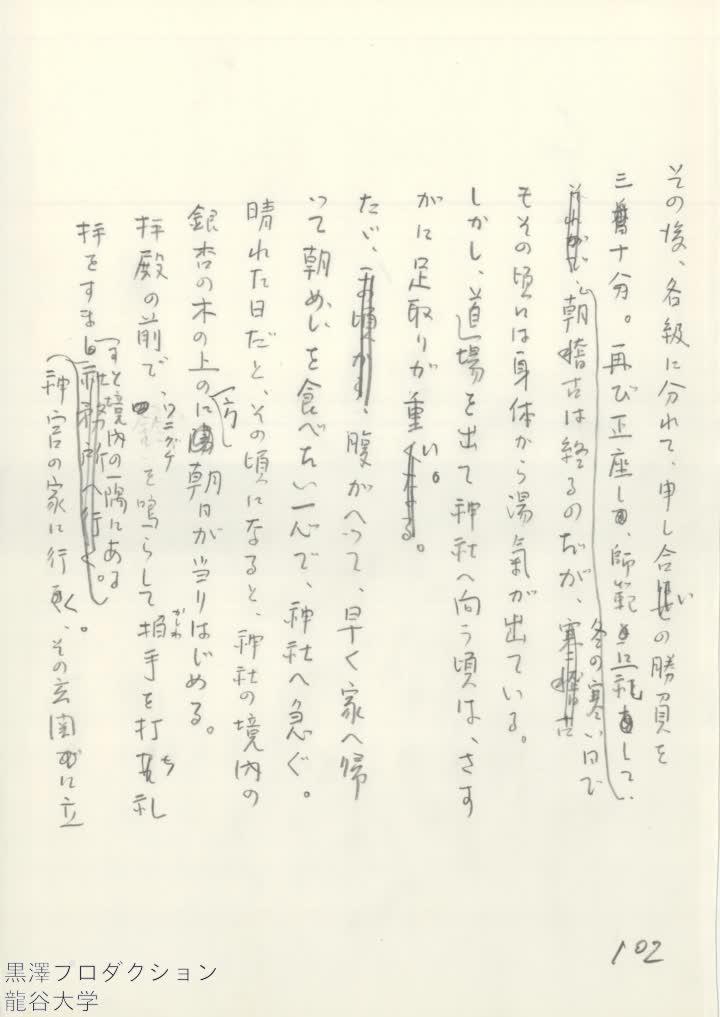 その後、各級に分れて、申し合いの勝負を
三十分。再び正座し、師範に礼をして、
朝稽古は終るのだが、冬の寒い日で
もその頃には身体から湯気が出ている。
しかし、道場を出て神社へ向う頃は、さす
がに足取りが重い。
たゞ、腹がへって、早く家へ帰
って朝めしを食べたい一心で、神社へ急ぐ。
晴れた日だと、その頃になると、神社の境内の
銀杏の木の上の方に朝日が当りはじめる。
拝殿の前で、ワニグチを鳴らして拍手を打ち礼
かしわ
拝をすますと境内の一隅にある
神官の家に行く、その玄関に立
102
黒澤プロダクション
龍谷大学